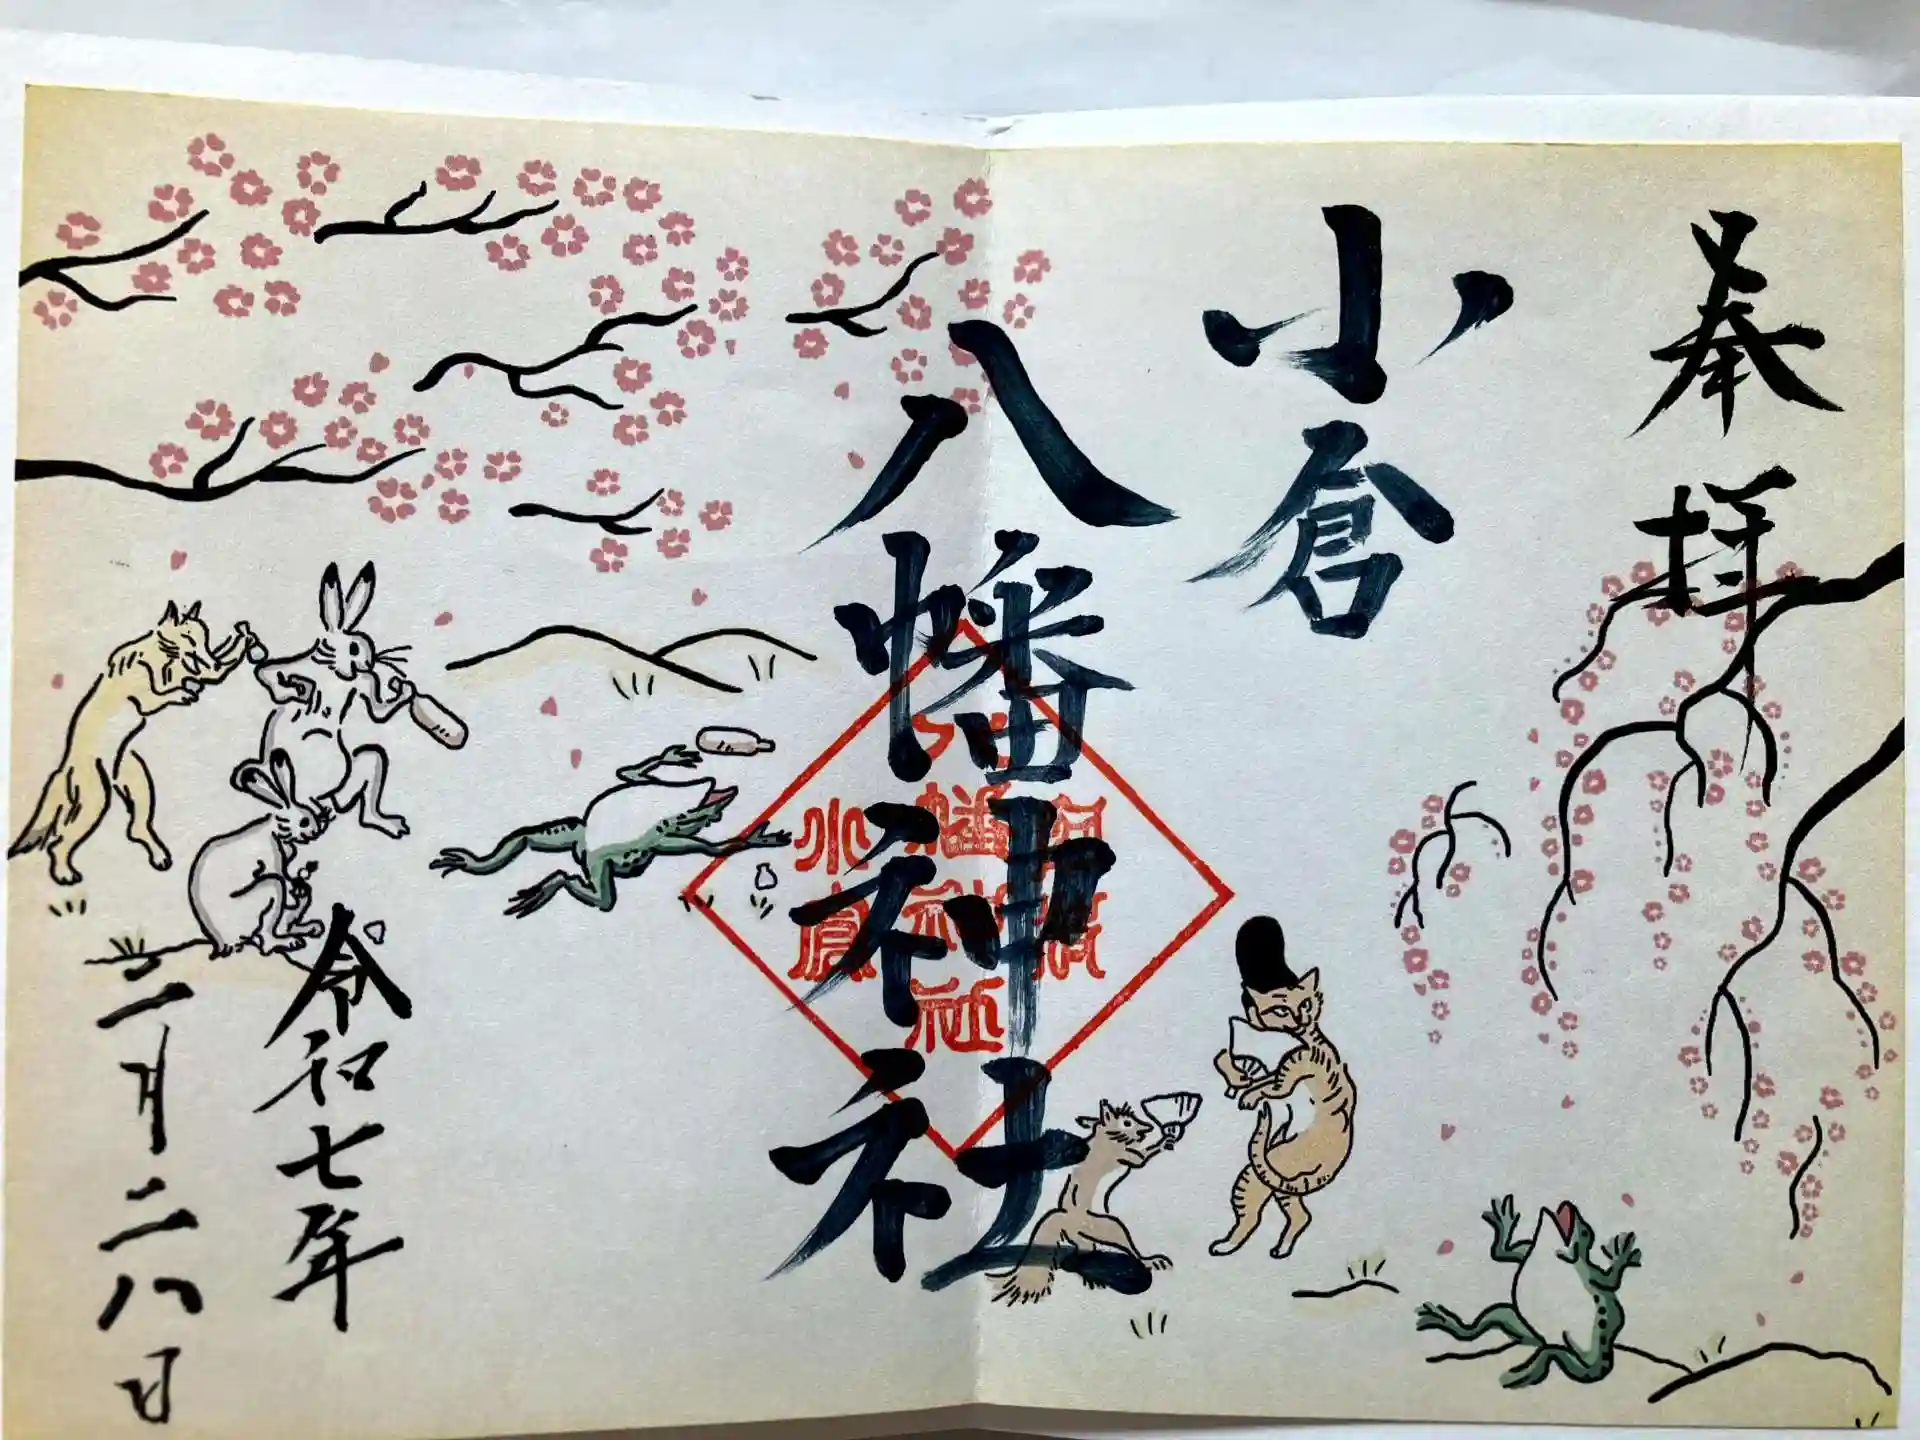 奉拝
小倉
八幡神社
八幡神社
小倉
令和七年
二月二八日